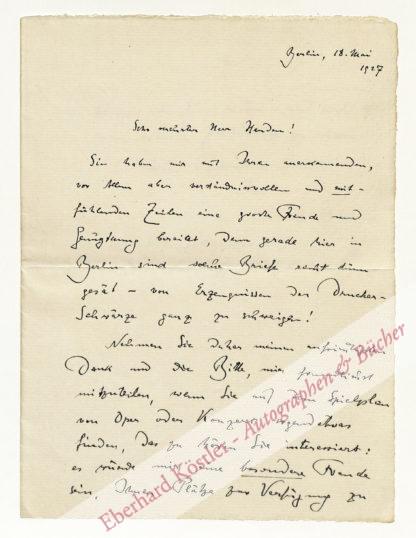 Berlin, 18. Mai
1927
Sehr verehrter Herr Harden!
Sie haben mir mit Ihren anerkennenden,
vor Allem aber verständnisvollen und mit-
fühlenden Zeilen eine grosse Freude und
Genugtuung bereitet, denn gerade hier in
Berlin sind solche Briefe recht dünn
gesät – von Erzeugnissen der Drucker-
Schwärze ganz zu schweigen!
Nehmen Sie daher meinen aufrichtigen
Dank und die Bitte, mir
mitzuteilen, wenn Sie auf dem Spielplan
von Oper oder Konzert irgend etwas
finden, das zu hören Sie interessiert:
es würde mir eine besondere Freude
sein, Ihnen Plätze zur Verfügung zu
Eberhard Köstler - Autographen & Bücher